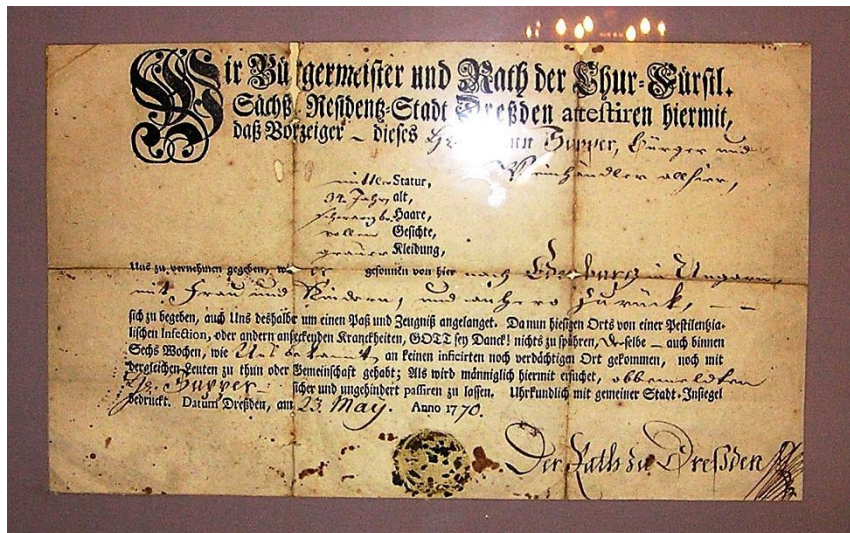 Wir Bürgermeister und Rath der Chur-Fürstl.
Sächß. Residentz-Stadt Dreßden attestiren hiermit,
daß Vorzeiger dieses Supper, Bürger und
Weinhändler allhier,
mittler Statur,
34. Jahr alt,
schwarzbr. Haare,
vollen Gesichts,
grauer Kleidung,
Uns zu vernehmen gegeben, wie er gesonnen von hier nach Ungarn,
mit Frau und Kindern, und anhero zurück,
sich zu begeben, auch Uns deshalbe um einen Paß und Zeugniß angelanget. Da nun hiesigen Orts von einer Pestilentzia-
lischen Infection, oder andern ansteckenden Kranckheiten, GOTT sey Danck! nichts zu spühren, Derselbe – auch binnen
Sechs Wochen, wie Uns bekannt, an keinen inficirten noch verdächtigen Ort gekommen, noch mit
dergleichen Leuten zu thun oder Gemeinschaft gehabt; Als wird männiglich hiermit ersuchet, obbemeldten
Hr. Supper sicher und ungehindert passiren zu lassen. Uhrkundlich mit gemeiner Stadt-Insiegel
bedruckt. Datum Dreßden, am 23. May. Anno 1770.
Der Rath zu Dreßden